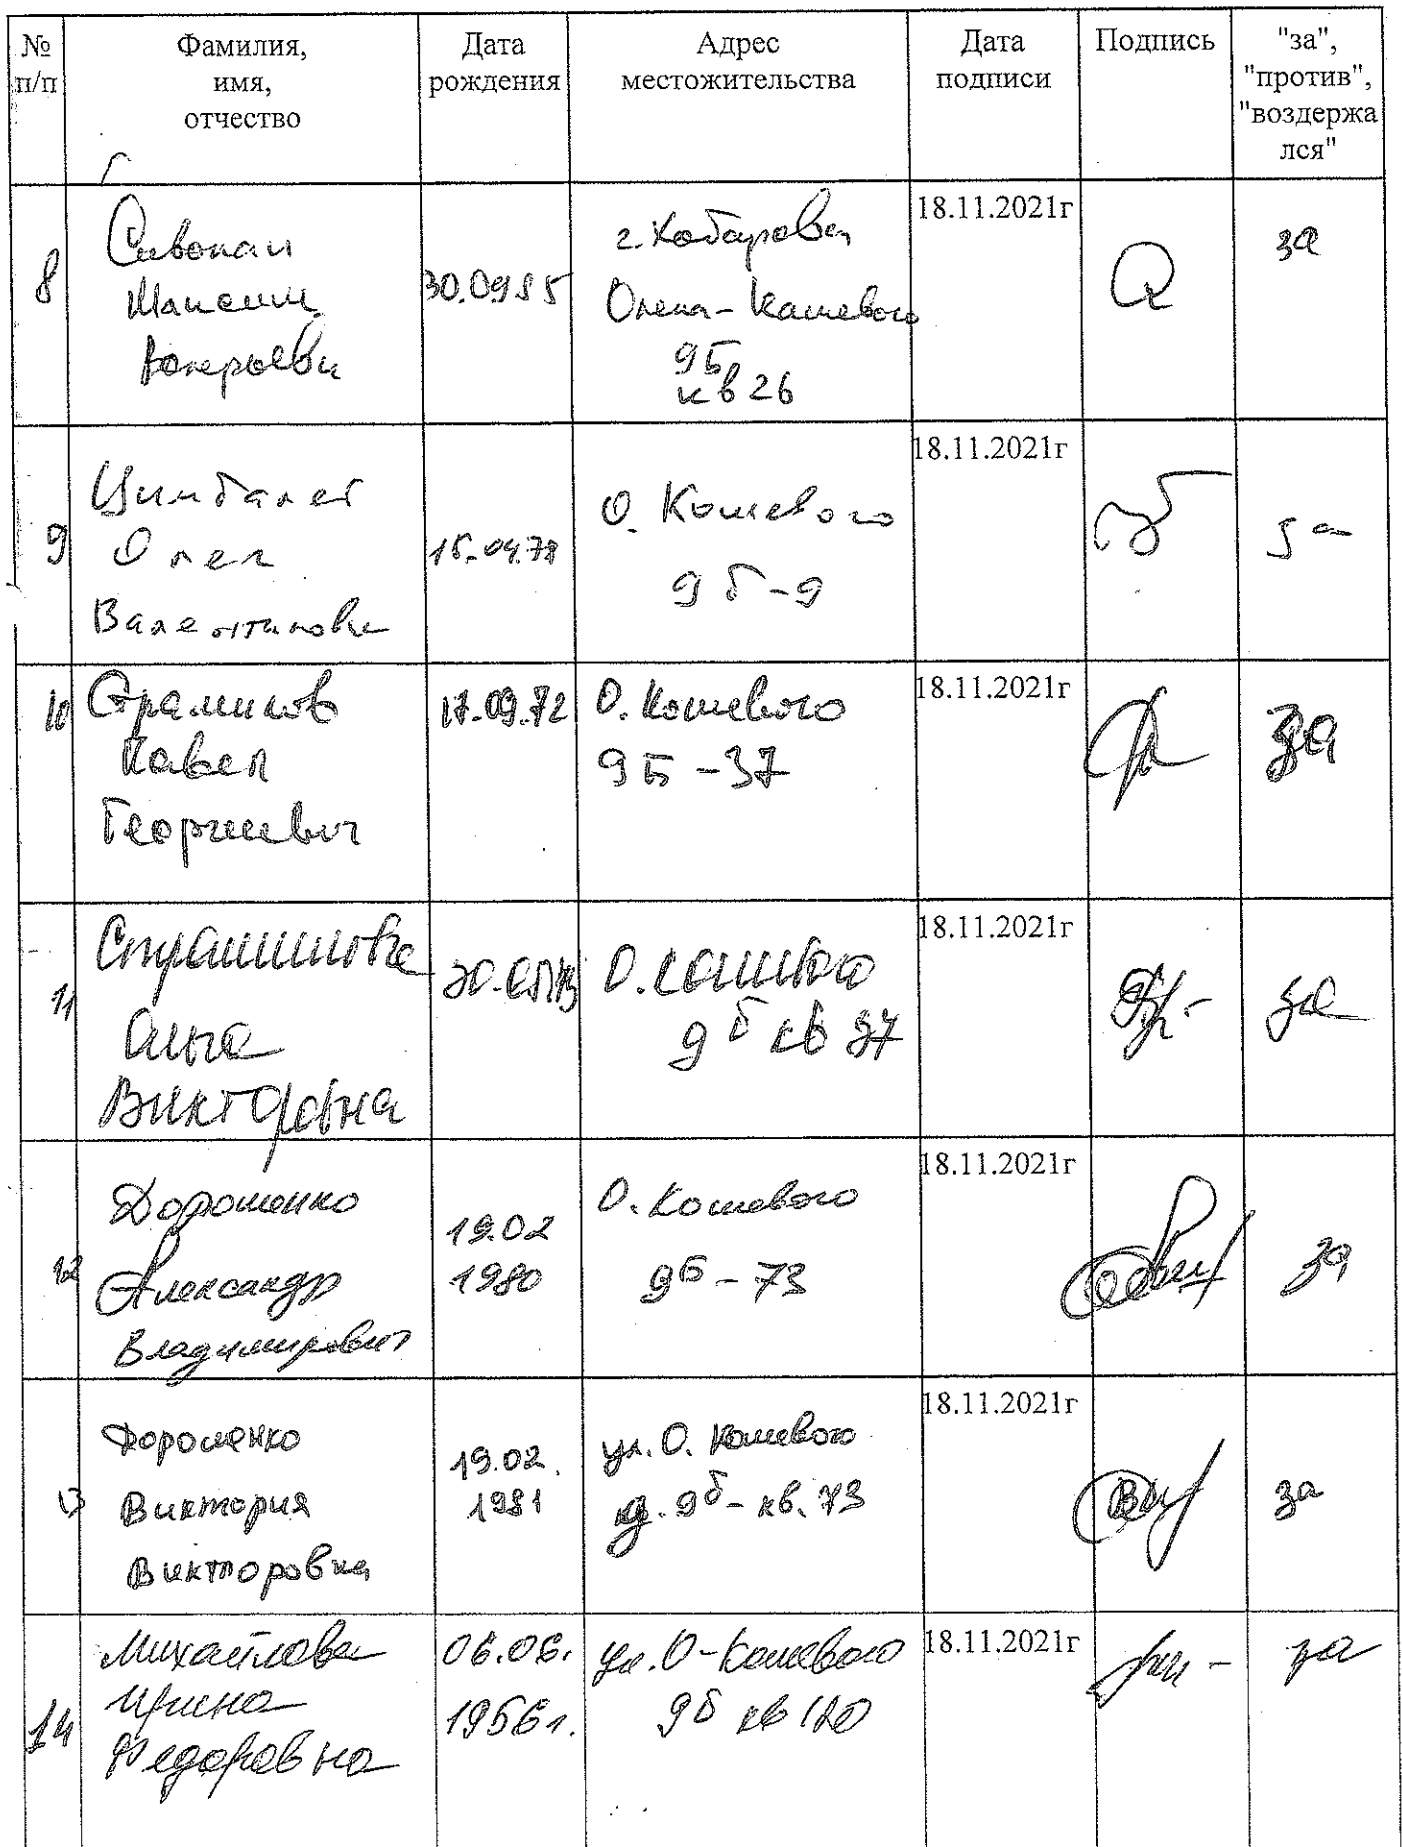 № п/п
Фамилия, имя, отчество
Дата рождения
Адрес местожительства
Дата подписи
Подпись
"за", "против", "воздержался"
8
Максим
30.09.85
г. Хабаровск
Олега-Кошевого
9Б
кв 26
18.11.2021г
за
9
Олег
Валентинович
О. Кошевого
9б-9
18.11.2021г
за
10
Страшников
Павел
Георгиевич
17.09.72
О. Кошевого
9Б-37
18.11.2021г
за
11
Ольга
Викторовна
О. Кошевого
9б кв 37
18.11.2021г
за
12
Дорошенко
Александр
Владимирович
19.02
1980
О. Кошевого
9Б-73
18.11.2021г
за
13
Дорошенко
Виктория
Викторовна
19.02.
1981
ул. О. Кошевого
д. 9б-кв. 73
18.11.2021г
за
14
Михайлова
Ирина
Федоровна
06.06.
1956г.
ул. О-Кошевого
9б кв 120
18.11.2021г
за